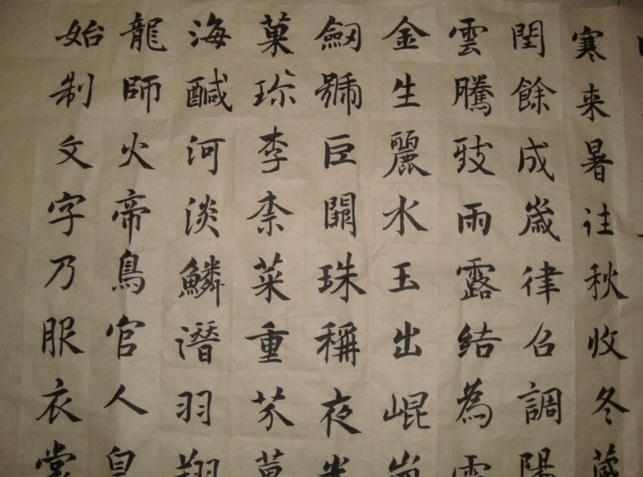 寒来暑往秋收冬藏
閏餘成歲律召調陽
雲騰致雨露結為
金生麗水玉出崐崗
劒號巨闕珠稱夜光
菓珎李柰菜重芥
海鹹河淡鱗潛羽翔
龍師火帝鳥官人皇
始制文字乃服衣裳